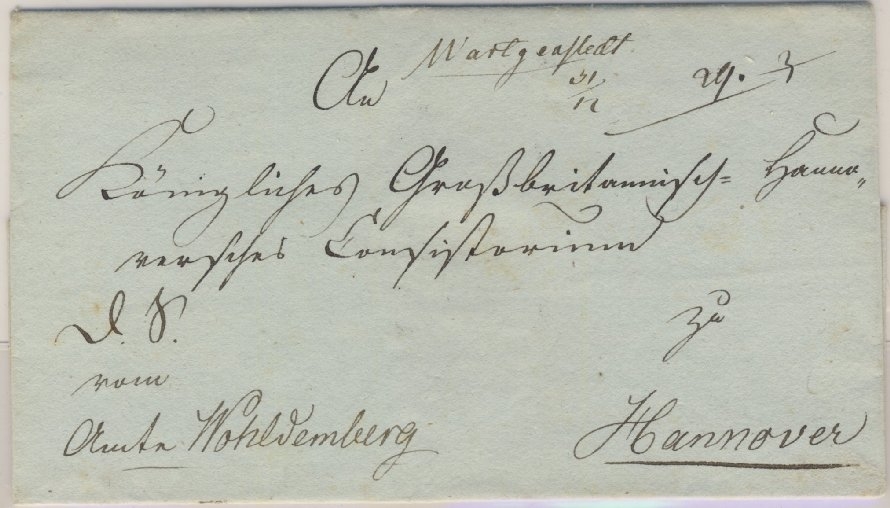 An Wartjenstedt
31/12
Königliches Großbritannisch= Hanno„
versches Consistorium
D. S. zu
vom
Amte Wohldemberg Hannover